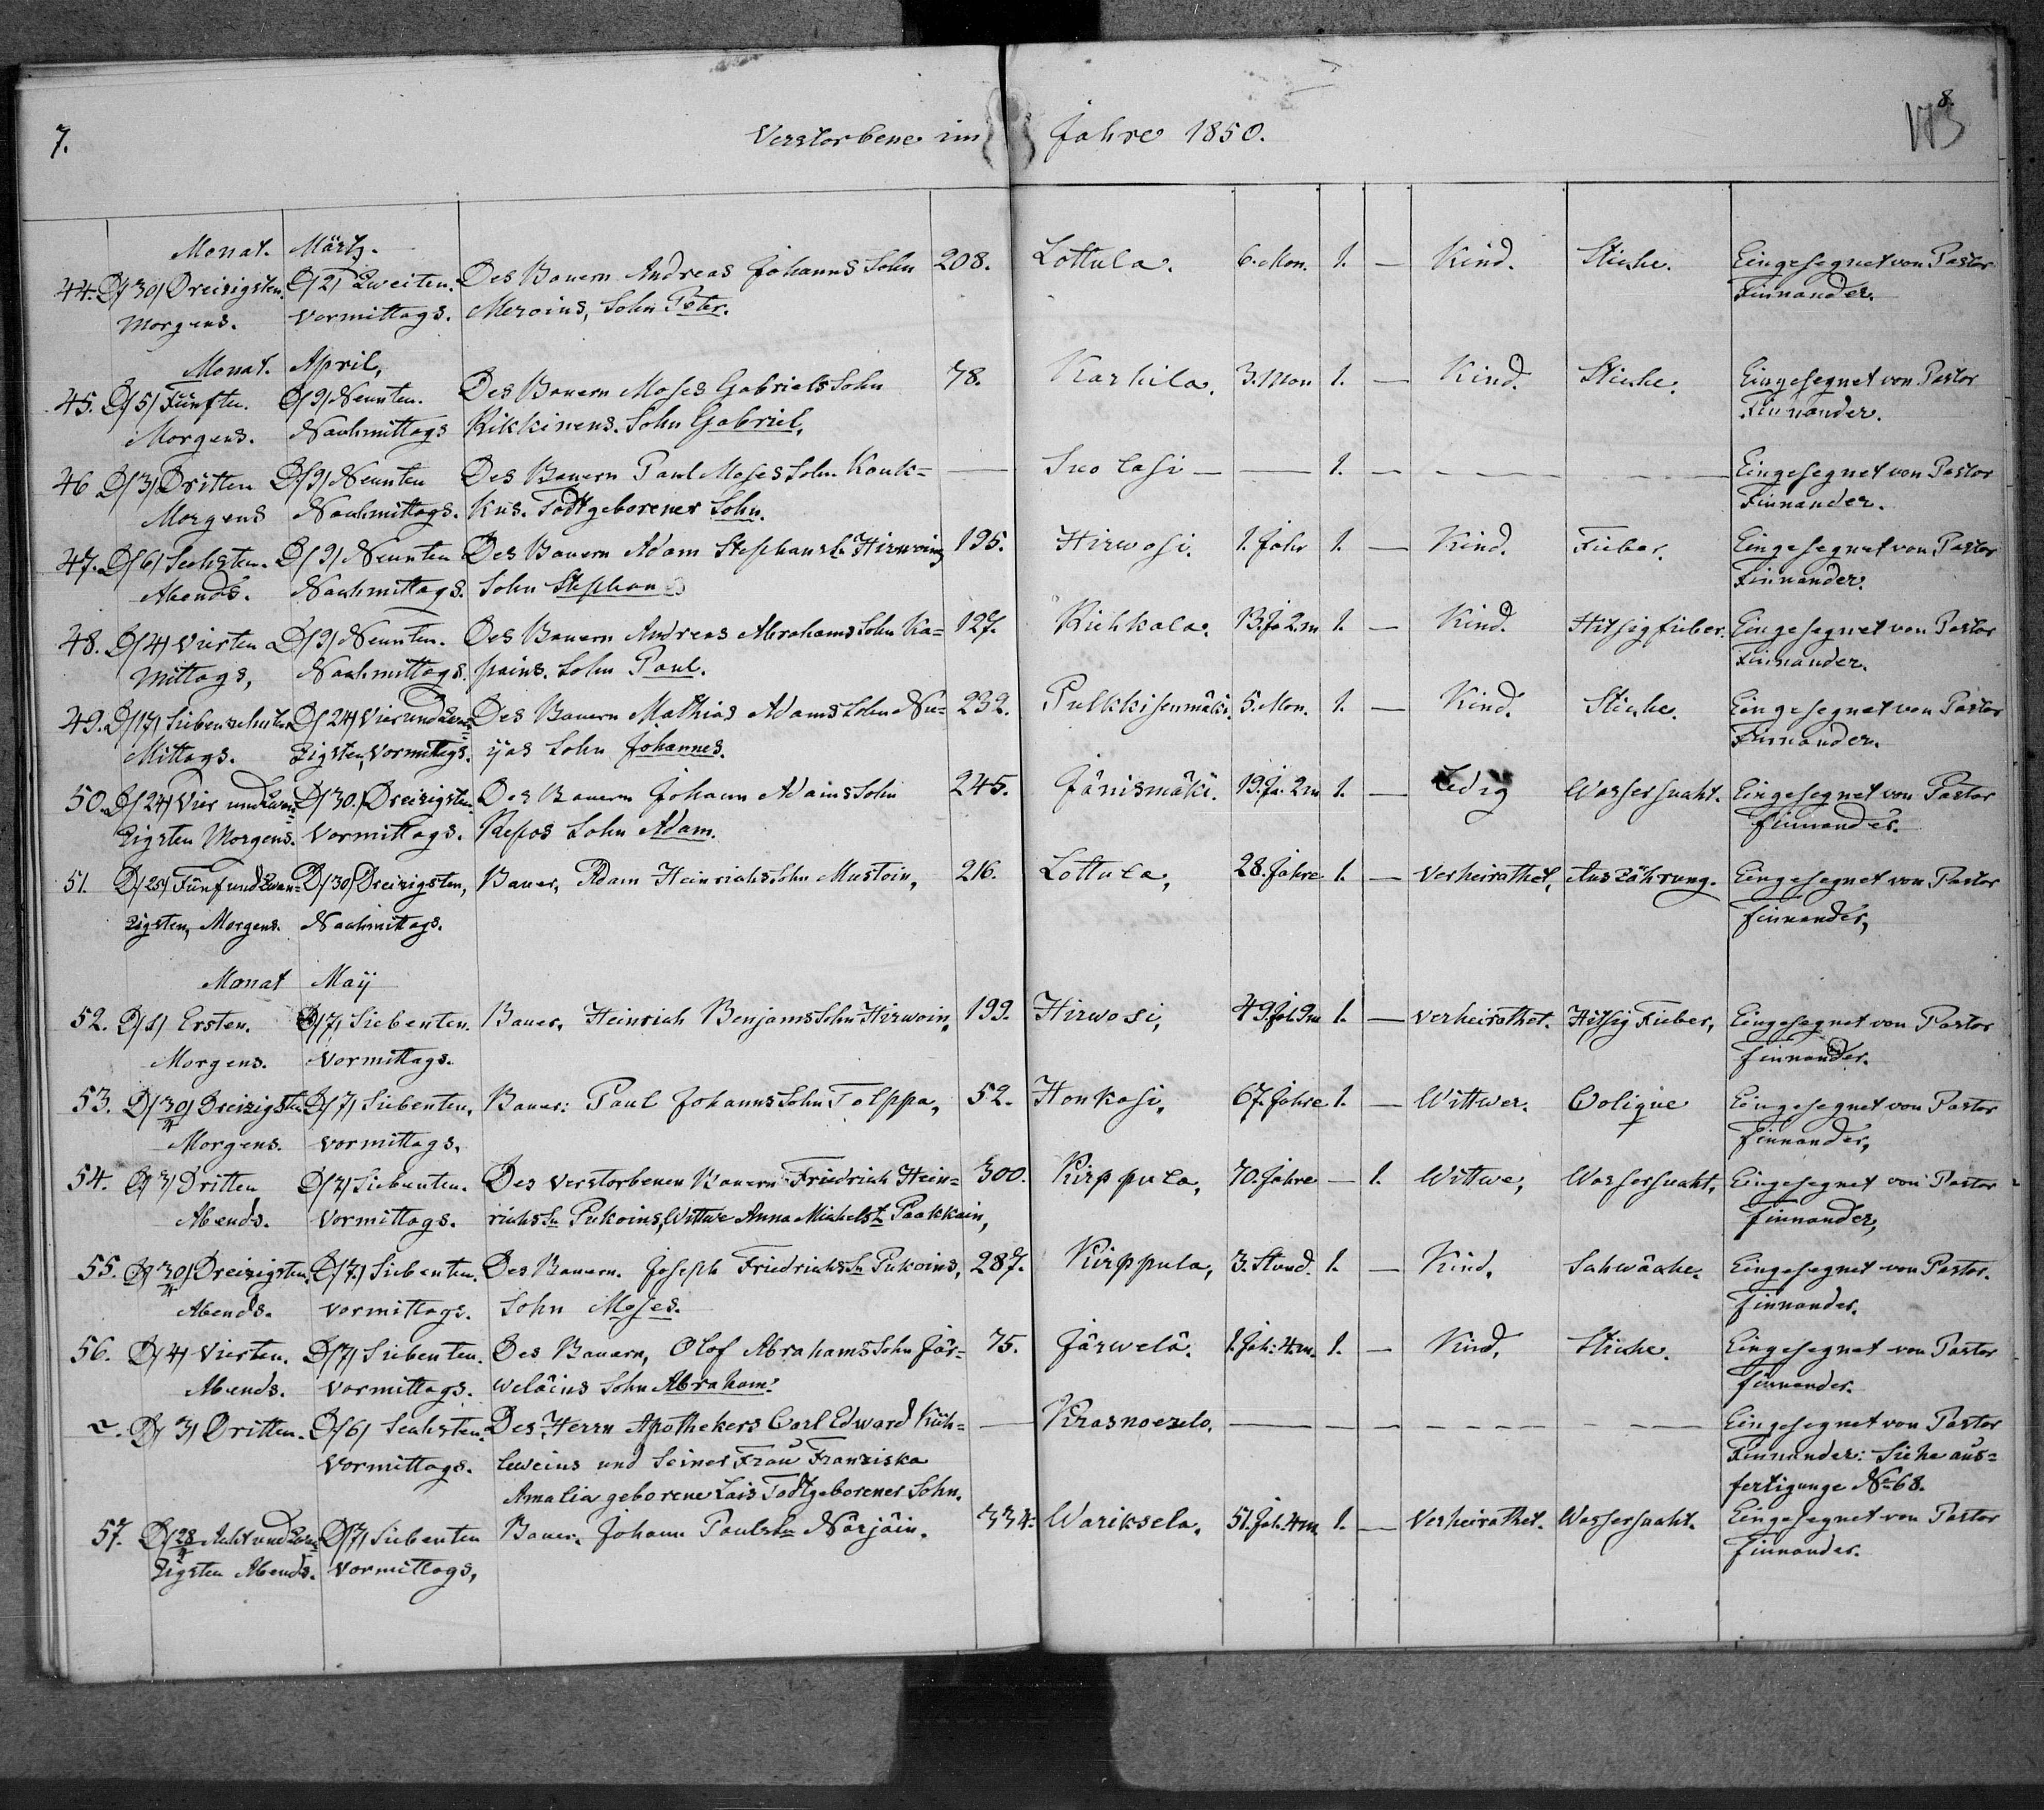 7.
Verstorbene im Jahre 1850.
8.
113
Monat. Märtz.
44. D/30/ Dreizigsten. D/2/ Zweiten. Des Bauern Andreas Johanns Sohn 208. Lottula. 6. Mon. 1. — Kind. Stiche. Eingesegnet von Pastor
Morgens. Vormittags. Meroins, Sohn Peter. Finnander.
Monat. April,
45. D/5/ Fünften. D/9/ Neunten. Des Bauern Moses Gabriels Sohn 78. Karkila. 3. Mon 1. — Kind. Stiche. Eingesegnet von Pastor
Morgens. Nachmittags Kikkinens. Sohn Gabriel. Finnander.
46 D/3/ Dritten D/9/ Neunten Des Bauern Paul Moses Sohn Kauk= — Suolasi — — 1. — — — Eingesegnet von Pastor
Morgens Nachmittags. kus. Todtgeborener Sohn. Finnander.
47. D/6/ Sechsten. D/9/ Neunten Des Bauern Adam Stephans Sn Hirwoins 195. Hirwosi. 1. Jahr 1. — Kind. Fieber. Eingesegnet von Pastor
Abends. Nachmittags. Sohn Stephan Finnander.
48. D/4/ Vierten D/9/ Neunten. Des Bauern Andreas Abrahams Sohn Ka= 127. Kichkala. 13. Ja 2. m 1. — Kind. Hitsigfieber. Eingesegnet von Pastor
Mittags, Nachmittags. pains. Sohn Paul. Finnander.
49. D/17/ Siebenzehnten D/24/ Vierundzwan= Des Bauern Mathias Adams Sohn Nu= 232. Pulkkisenmäki. 5. Mon. 1. — Kind. Stiche. Eingesegnet von Pastor
Mittags. zigsten, Vormittags. ijas Sohn Johannes. Finnander.
50. D/24/ Vier und Zwan= D/30./ Dreizigsten Des Bauern Johann Adams Sohn 245. Jänismäki. 19. Ja. 2 m 1. — Ledig Wassersucht. Eingesegnet von Pastor
zigsten Morgens. Vormittags. Repos Sohn Adam. Finnander.
51. D/25/ Fünf und Zwan= D/30/ Dreizigsten, Bauer, Adam Heinrichs Sohn Mustoin, 216. Lottula, 28. Jahre 1. — Verheirathet, Auszährung. Eingesegnet von Pastor
zigsten, Morgens. Nachmittags. Finnander,
Monat Maij
52. D/1/ Ersten. D/7/ Siebenten. Bauer, Heinrich Benjams Sohn Hirwoin, 199. Hirwosi, 49. Jah. 9m 1. — Verheirathet. Hitsig Fieber, Eingesegnet von Pastor
Morgens. Vormittags. Finnander.
53. D/30/4 Dreizigsten D/7/ Siebenten, Bauer: Paul Johanns Sohn Tolppa, 52. Honkasi, 67. Jahre 1. — Wittwer. Colique Eingesegnet von Pastor
Morgens. Vormittags. Finnander,
54. D/3/ Dritten D/7/ Siebenten. Des verstorbenen Bauern Friedrich Hein= 300. Kirppula, 70. Jahre — 1. Wittwe, Wassersucht, Eingesegnet von Pastor
Abends. Vormittags. richs Sn Pukoins, Wittwe Anna Michelst Paakkain, Finnander,
55. D/30/4 Dreizigsten, D/7./ Siebenten. Des Bauern. Joseph Friedrichs Sn Pukoins, 287. Kirppula, 3. Stund. 1. — Kind, Schwäche. Eingesegnet von Pastor.
Abends. Vormittags. Sohn Moses. Finnander.
56. D/4/ Vierten. D/7/ Siebenten. Des Bauern, Olof Abrahams Sohn Jär= 75. Järwelä. 1. Jah: 4. m. 1. — Kind, Stiche. Eingesegnet von Pastor
Abends. Vormittags. weläins Sohn Abraham. Finnander.
D/3/ Dritten. D/6/ Sechsten. Des Herrn Apothekers Carl Edward Küh= — Krasnoezelo. — — — — — Eingesegnet von Pastor
Vormittags. leweins und Seiner Frau Franziska Finnander: Siehe aus=
Amalia geborene Lais Todtgeborener Sohn. fertigunge No 68.
57. D/28/4 Acht und Zwan= D/7/ Siebenten Bauer. Johann Pauls Sn Närjäin. 334. Wariksela, 51. Jah. 4 m 1. — Verheirathet. Wassersucht. Eingesegnet von Pastor
zigsten Abends. Vormittags, Finnander.